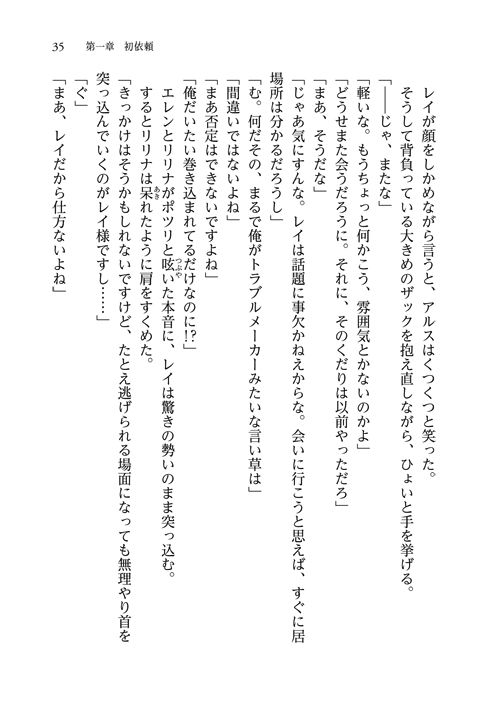 35　第一章　初依頼
　レイが顔をしかめながら言うと、アルスはくつくつと笑った。
　そうして背負っている大きめのザックを抱え直しながら、ひょいと手を挙げる。
「――じゃ、またな」
「軽いな。もうちょっと何かこう、雰囲気とかないのかよ」
「どうせまた会うだろうに。それに、そのくだりは以前やっただろ」
「まあ、そうだな」
「じゃあ気にすんな。レイは話題に事欠かねえからな。会いに行こうと思えば、すぐに居
場所は分かるだろうし」
「む。何だその、まるで俺がトラブルメーカーみたいな言い草は」
「間違いではないよね」
「まあ否定はできないですよね」
「俺だいたい巻き込まれてるだけなのに!?」
　エレンとリリナがポツリと呟いた本音に、レイは驚きの勢いのまま突っ込む。
　するとリリナは呆れたように肩をすくめた。
「きっかけはそうかもしれないですけど、たとえ逃げられる場面になっても無理やり首を
突っ込んでいくのがレイ様ですし……」
「ぐ」
「まあ、レイだから仕方ないよね」